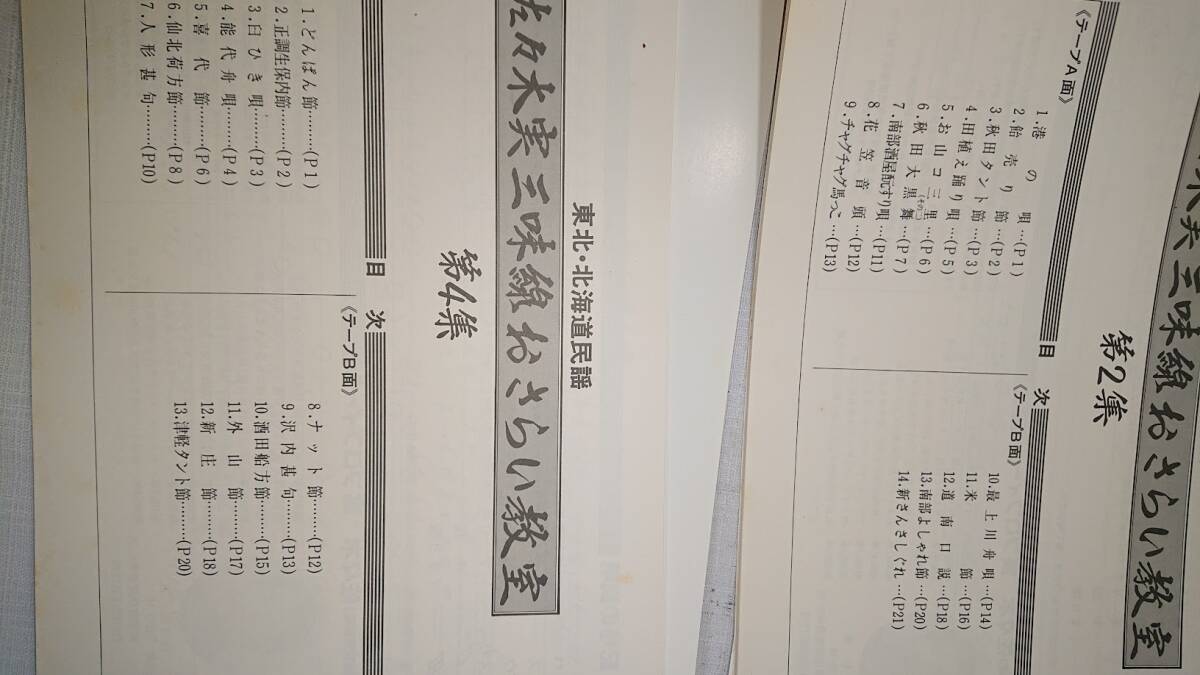 東北・北海道民謡
佐々木実三味線おさらい教室
第4集
目次
《テープB面》
1.どんぱん節………(P1)
2.正調生保内節………(P2)
3.臼ひき唄………(P3)
4.能代舟唄………(P4)
5.喜代節………(P6)
6.仙北荷方節………(P8)
7.人形甚句………(P10)
8.ナット節………(P12)
9.沢内甚句………(P13)
10.酒田船方節………(P15)
11.外山節………(P17)
12.新庄節………(P18)
13.津軽タント節………(P20)
木実三味線おさらい教室
第2集
目次
《テープA面》
1.港の唄…(P1)
2.飴売り節…(P2)
3.秋田タント節…(P3)
4.田植え踊り唄…(P5)
5.お山コ三里…(P6)
6.秋田大黒舞…(P7)
7.南部酒屋酛すり唄…(P11)
8.花笠音頭…(P12)
9.チャグチャグ馬っこ…(P13)
《テープB面》
10.最上川舟唄…(P14)
11.米節…(P16)
12.道南口説…(P18)
13.南部よしゃれ節…(P20)
14.新さんさしぐれ…(P21)